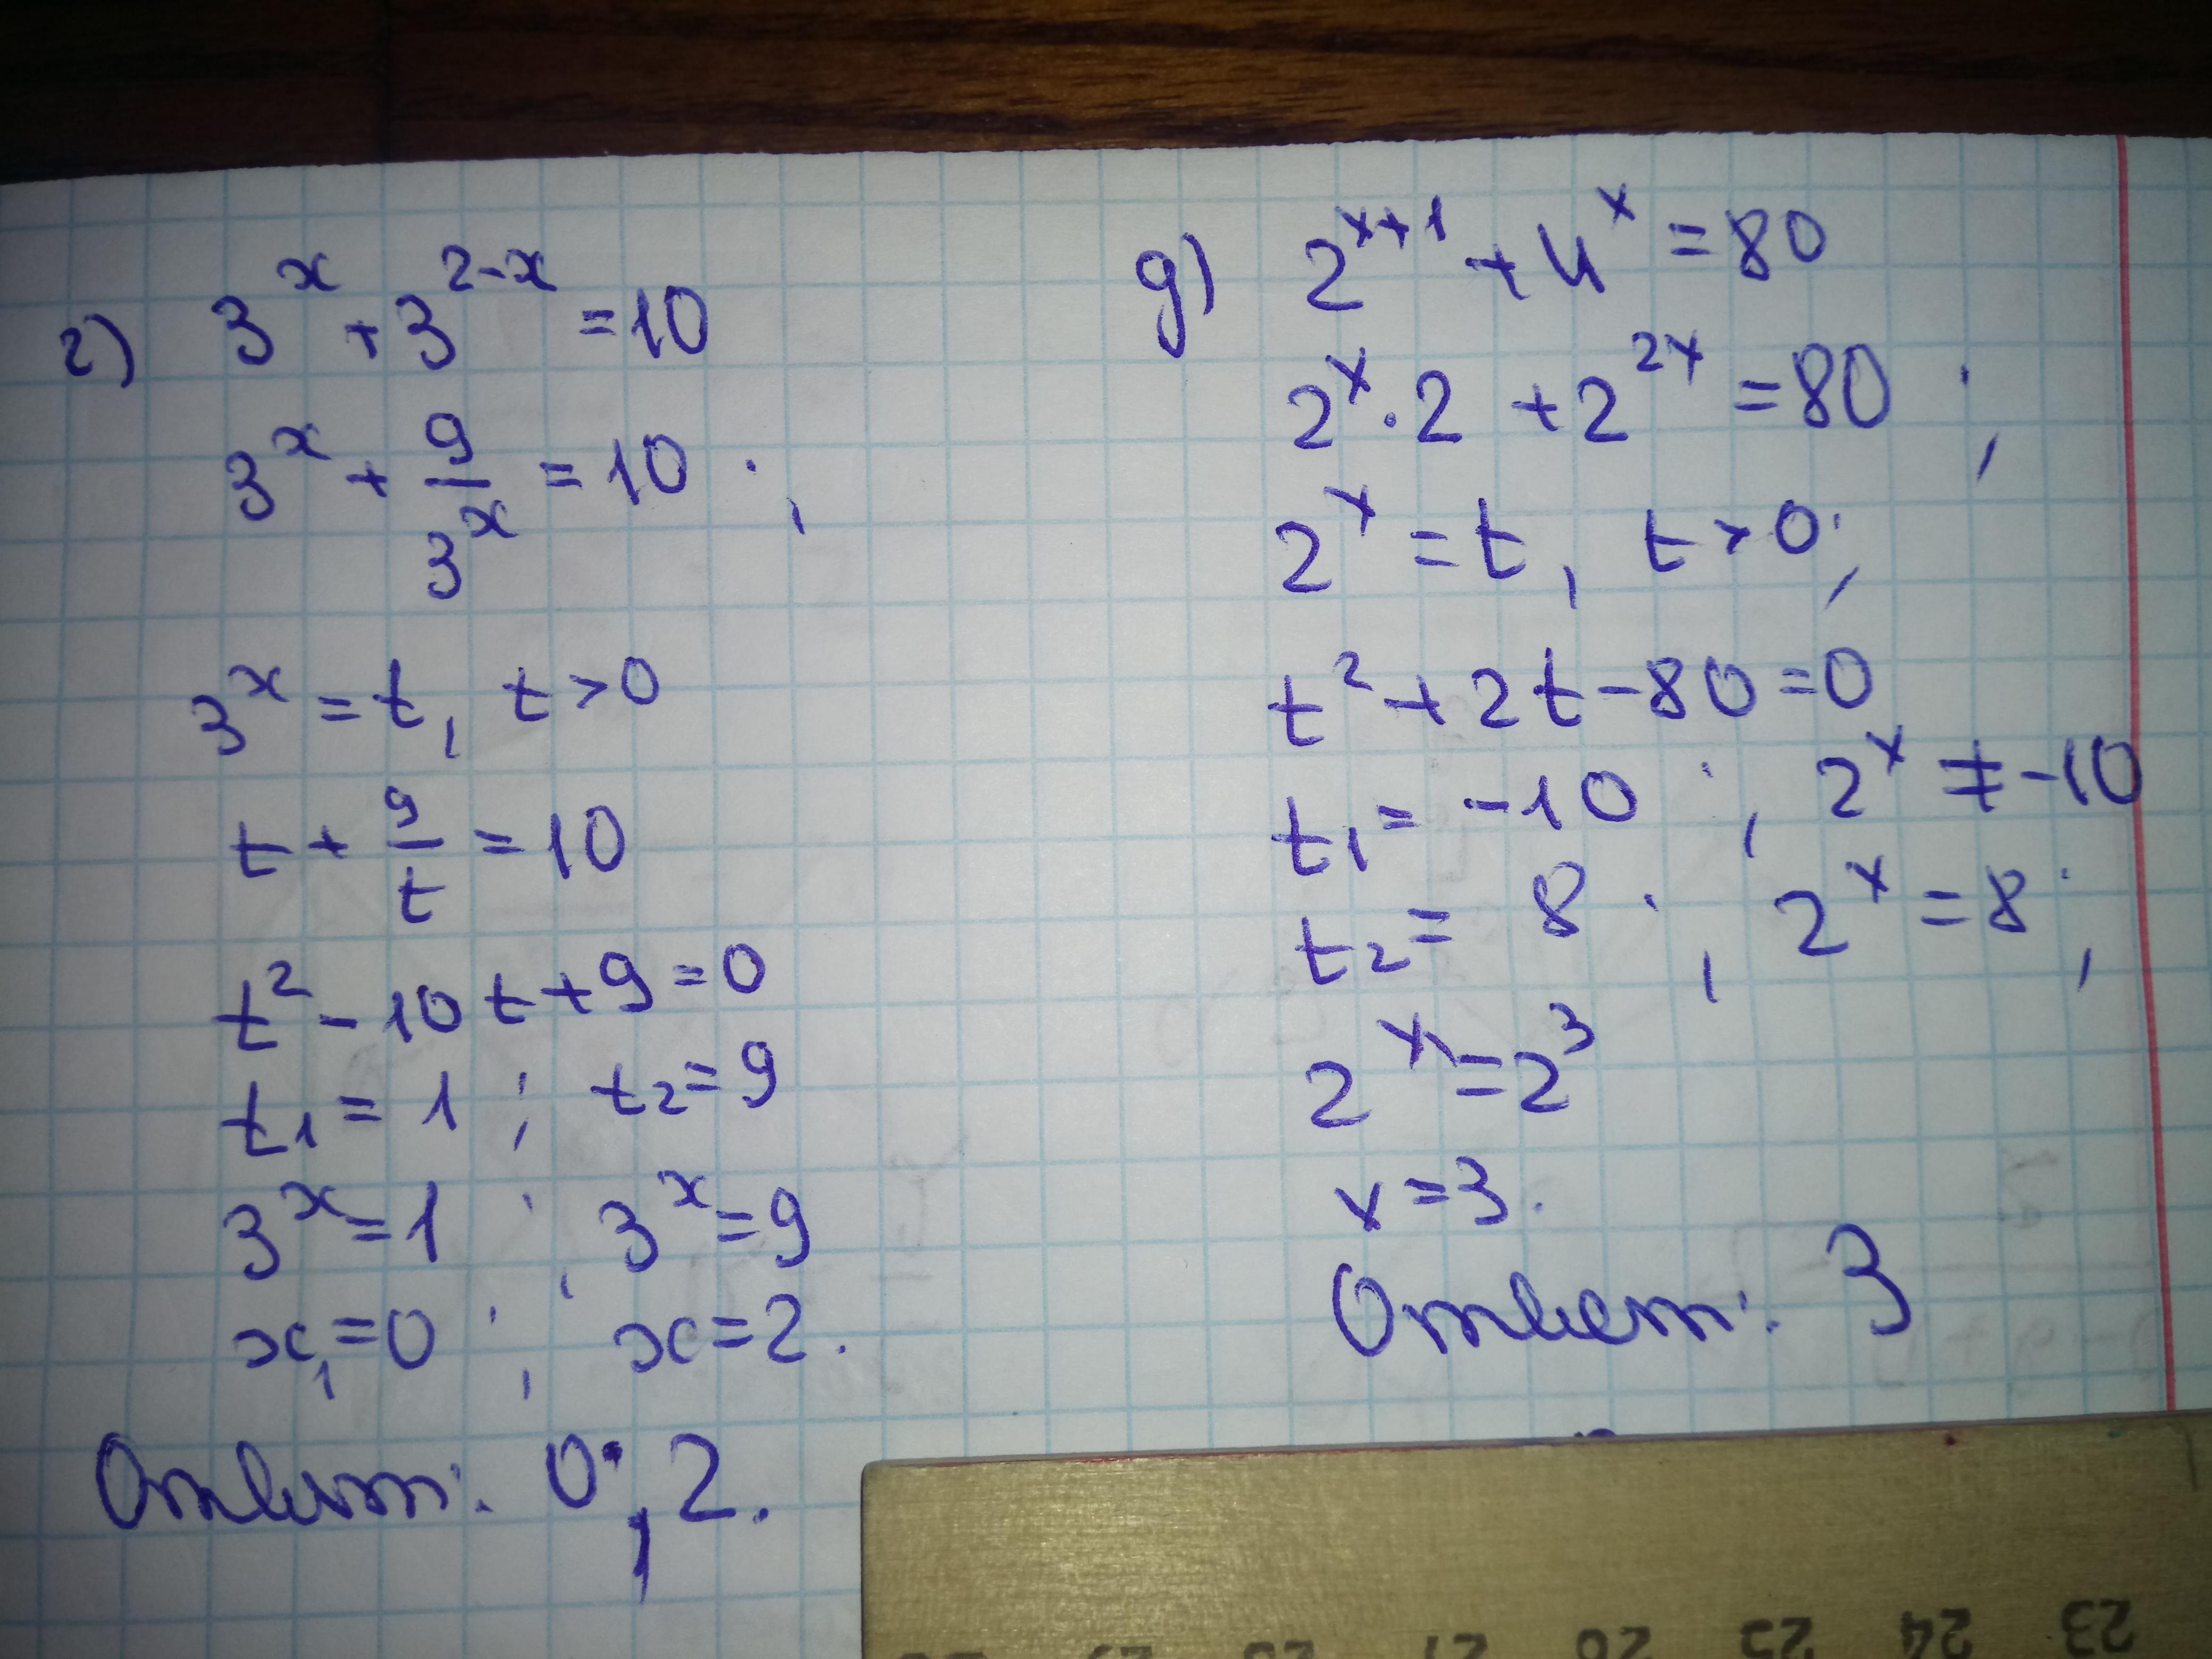 г) 3^x + 3^{2-x} = 10
3^x + 9/3^x = 10 ;
3^x = t, t > 0
t + 9/t = 10
t^2 - 10t + 9 = 0
t1 = 1 ; t2 = 9
3^x = 1 ; 3^x = 9
x1 = 0 ; x = 2.
Ответ: 0; 2.
д) 2^{x+1} + 4^x = 80
2^x · 2 + 2^{2x} = 80 ;
2^x = t, t > 0;
t^2 + 2t - 80 = 0
t1 = -10 ; 2^x ≠ -10
t2 = 8 ; 2^x = 8 ;
2^x = 2^3
x = 3.
Ответ: 3
23 24 25 26 27 28 29